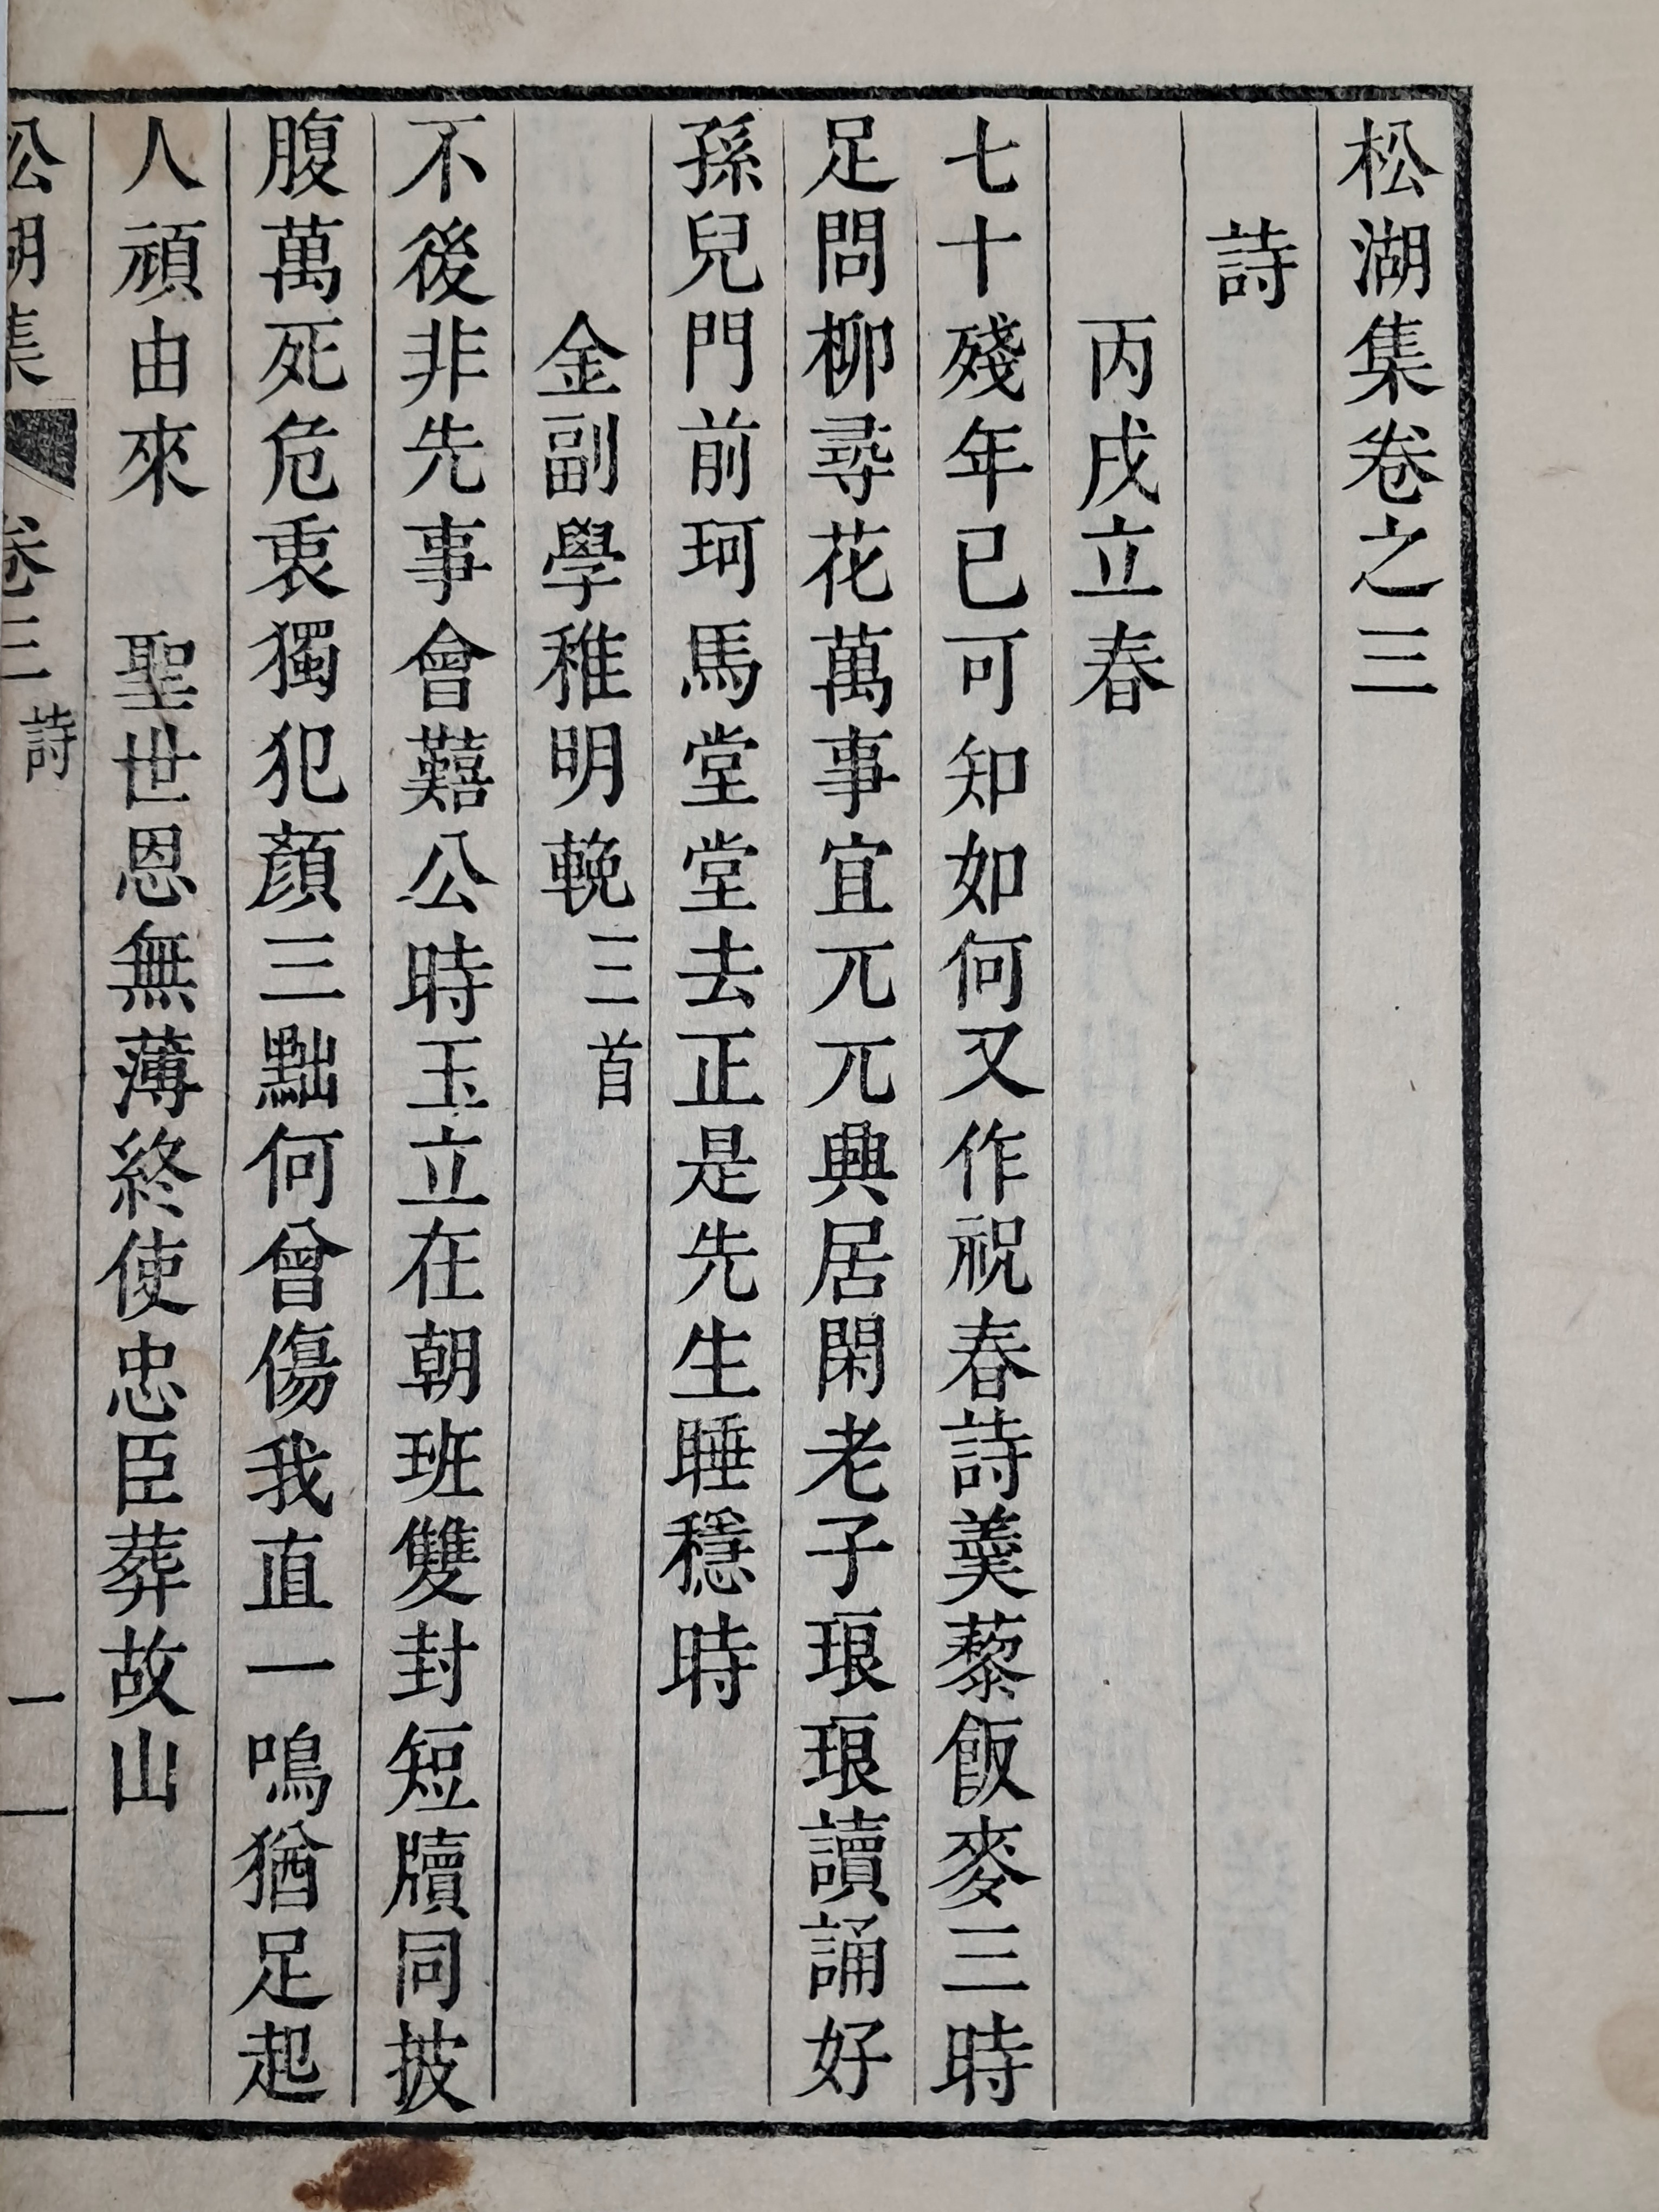 松湖集卷之三
詩
丙戌立春
七十殘年已可知如何又作祝春詩羹藜飯麥三時
足問柳尋花萬事宜兀兀興居閑老子琅琅讀誦好
孫兒門前珂馬堂堂去正是先生睡穩時
金副學稚明輓三首
不後非先事會囏公時玉立在朝班雙封短牘同披
腹萬死危衷獨犯顏三黜何曾傷我直一鳴猶足起
人頑由來 聖世恩無薄終使忠臣葬故山
松湖集 卷三 詩 一